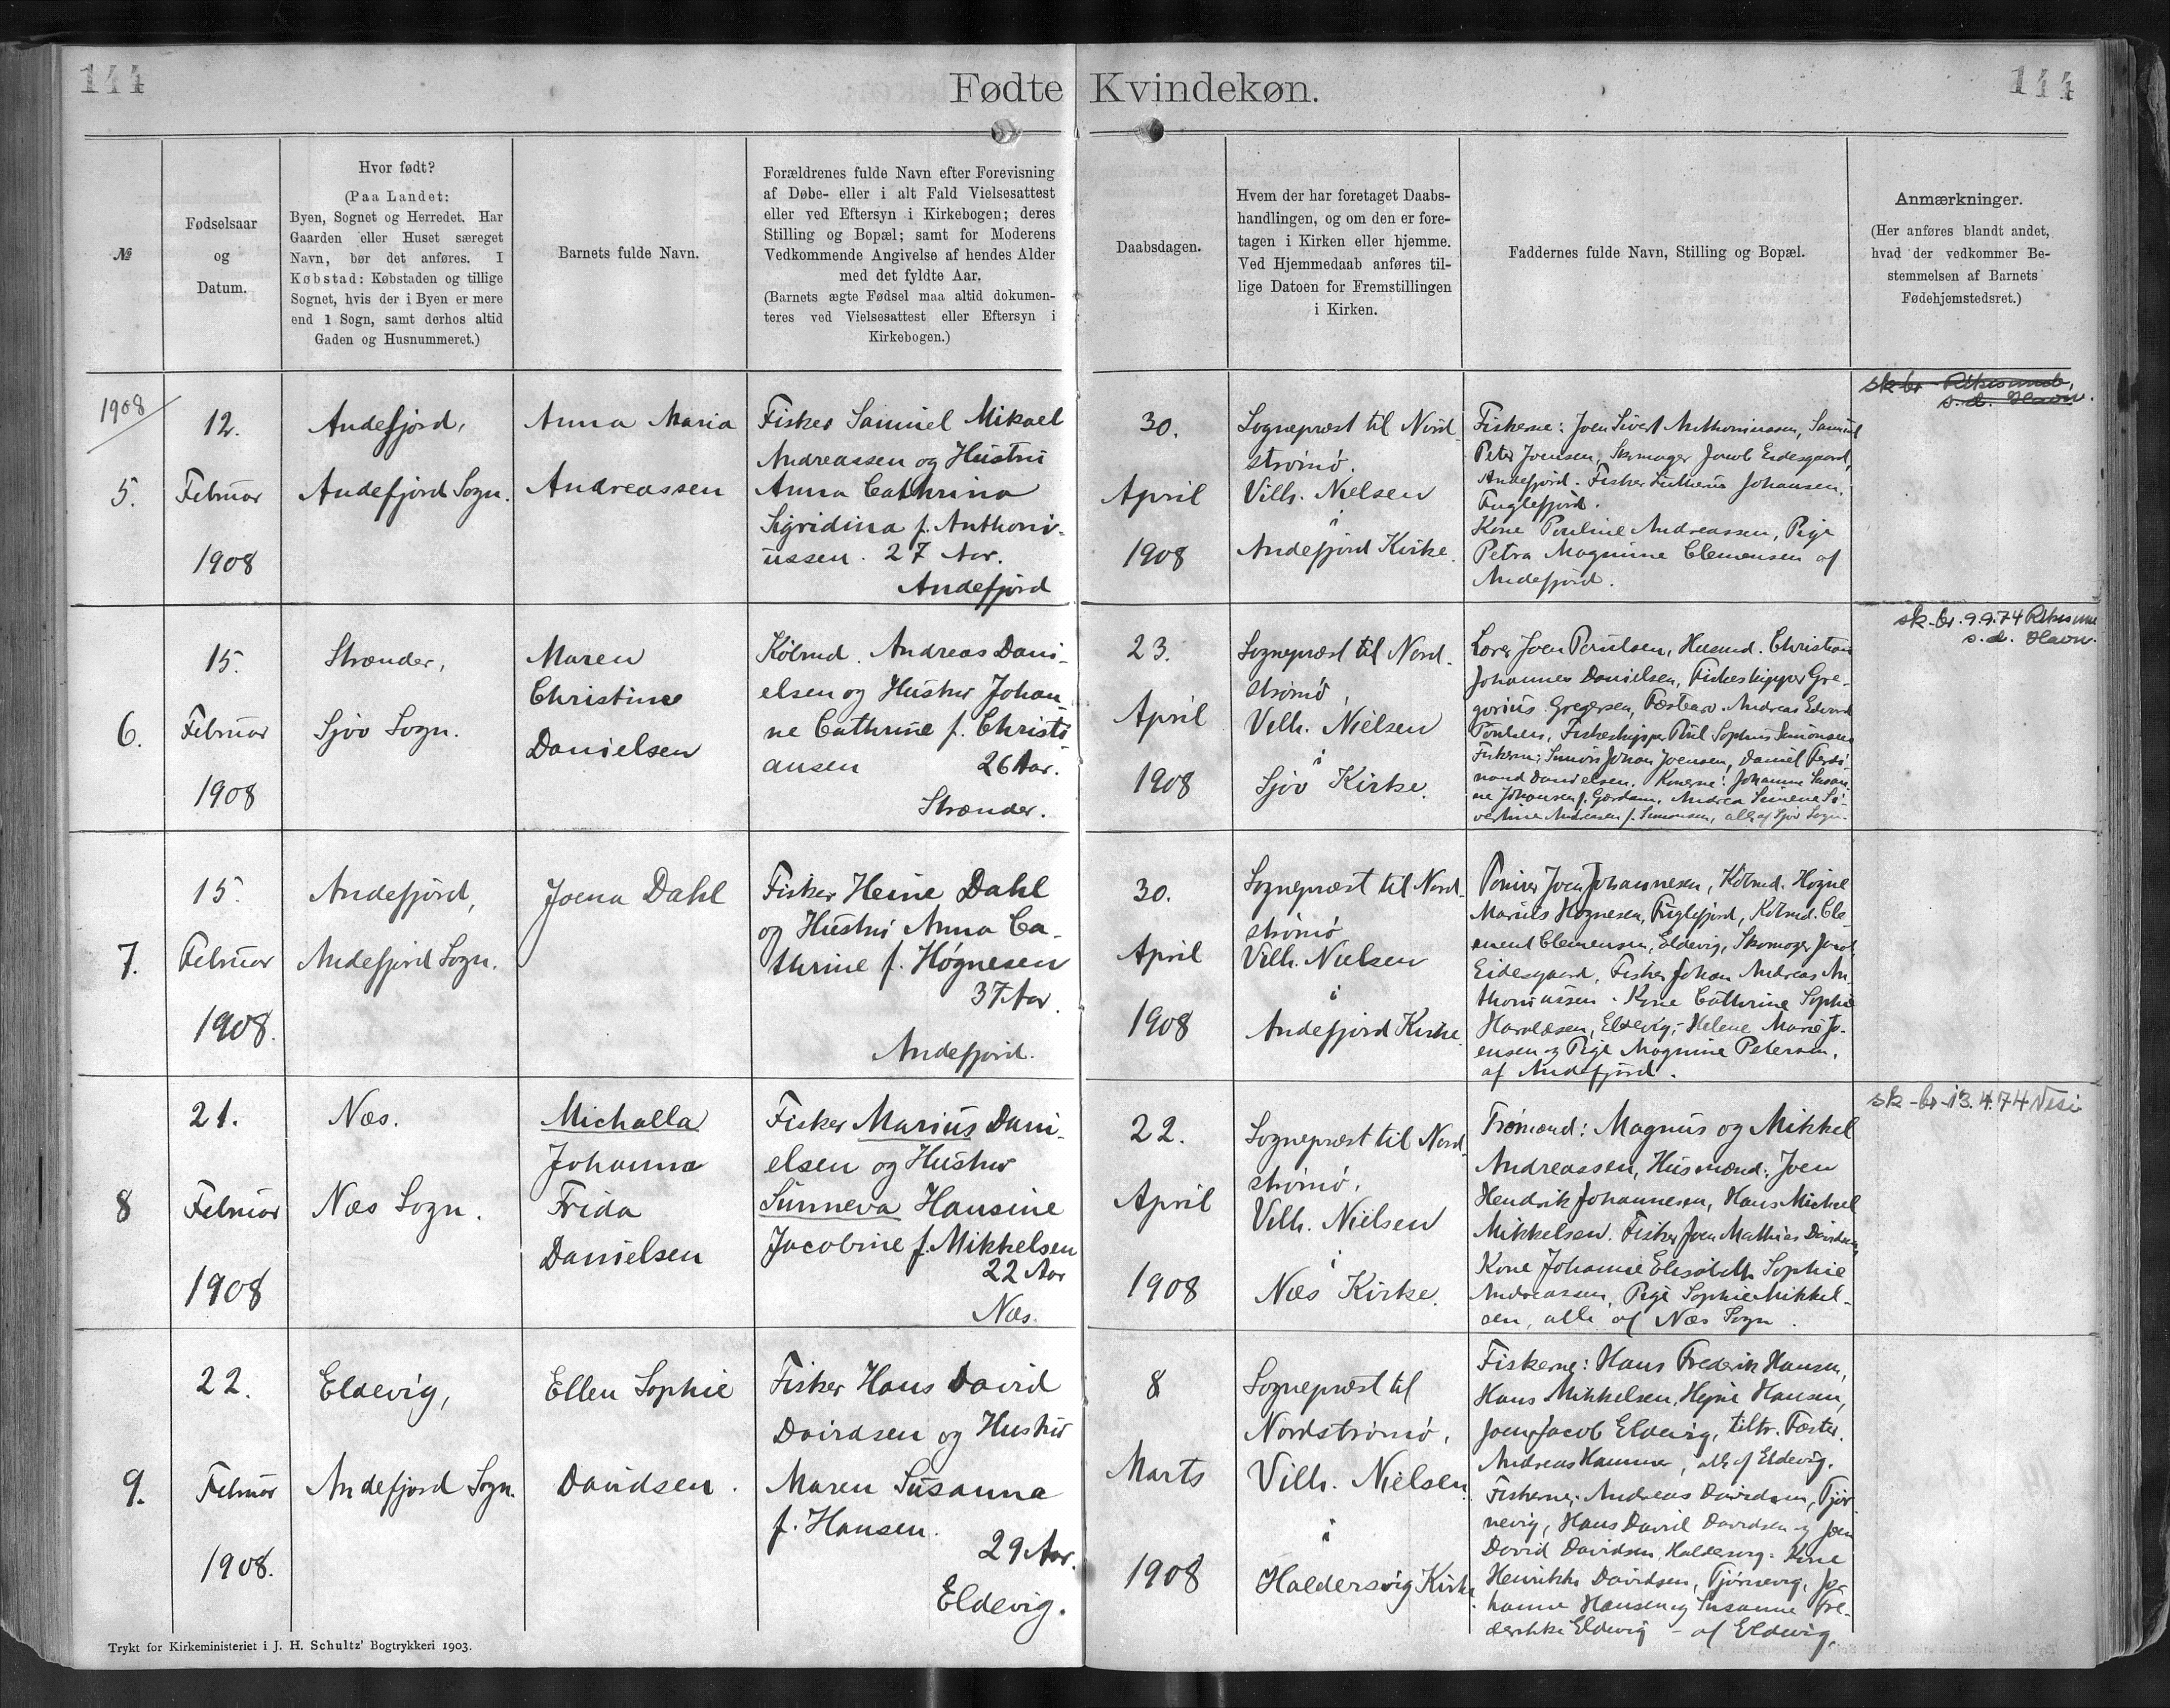 144
Fødte Kvindekøn.
144
№
Fødselsaar
og
Datum.
Hvor født?
(Paa Landet:
Byen, Sognet og Herredet. Har
Gaarden eller Huset særeget
Navn, bør det anføres. I
Købstad: Købstaden og tillige
Sognet, hvis der i Byen er mere
end 1 Sogn, samt derhos altid
Gaden og Husnummeret.)
Barnets fulde Navn.
Forældrenes fulde Navn efter Forevisning
af Døbe- eller i alt Fald Vielsesattest
eller ved Eftersyn i Kirkebogen; deres
Stilling og Bopæl; samt for Moderens
Vedkommende Angivelse af hendes Alder
med det fyldte Aar.
(Barnets ægte Fødsel maa altid dokumen-
teres ved Vielsesattest eller Eftersyn i
Kirkebogen.)
Daabsdagen.
Hvem der har foretaget Daabs-
handlingen, og om den er fore-
tagen i Kirken eller hjemme.
Ved Hjemmedaab anføres til-
lige Datoen for Fremstillingen
i Kirken.
Faddernes fulde Navn, Stilling og Bopæl.
Anmærkninger.
(Her anføres blandt andet,
hvad der vedkommer Be-
stemmelsen af Barnets
Fødehjemstedsret.)
1908
5.
12.
Februar
1908
Andefjord,
Andefjord Sogn.
Anna Maria
Andreassen
Fisker Samuel Mikael
Andreassen og Hustru
Anna Cathrina
Sigridina f. Anthoni-
ussen. 27 Aar.
Andefjord
30.
April
1908
Sognepræst til Nord-
strømø.
Vilh. Nielsen
i
Andefjord Kirke.
Fiskerne: Joen Sivert Anthoniussen, Samuel
Peter Joensen, Skomager Jacob Eidesgaard,
Andefjord. Fisker Johansen,
Fuglefjord.
Kone Pouline Andreassen, Pige
Petra Magnine Clemensen af
Andefjord.
sk-br
s.d. Havn.
6.
15.
Februar
1908
Strænder,
Sjov Sogn.
Maren
Christine
Danielsen
Købmd. Andreas Dani-
elsen og Hustru Johan-
ne Cathrine f. Christi
ansen 26 Aar.
Strænder.
23.
April
1908
Sognepræst til Nord-
strømø,
Vilh. Nielsen
i
Sjov Kirke.
Lærer Joen Poulsen, Husmd. Christian
Johannes Danielsen, Fiskeskipper Gre-
gorius Gregersen, Andreas Edvard
Poulsen, Fiskeskipper Poul Sophus Simonsen
Fiskerne: Simon Johan Joensen, Daniel Ferdi
nand Danielsen. Konerne: Johanne Susan-
ne Johansen f. Andrea Simene
Andreasen f. Simonsen, alle af Sjov Sogn.
sk-br. 9.9.74
s.d. Havn.
7.
15.
Februar
1908.
Andefjord,
Andefjord Sogn.
Joena Dahl
Fisker Heine Dahl
og Hustru Anna Ca-
thrine f. Høgnesen
37 Aar.
Andefjord.
30.
April
1908
Sognepræst til Nord-
strømø
Vilh. Nielsen
i
Andefjord Kirke.
Joen Johannesen, Købmd. Høgne
Marius Høgnesen, Fuglefjord, Købmd. Cle-
ment Clemensen, Eldevig, Skomager Jacob
Eidesgaard, Fisker Johan Andreas An
thoniussen. Kone Cathrine Sophie
Haraldsen, Eldevig, Helene Marie Jo-
ensen og Pige Magnine Petersen,
af Andefjord.
8
21.
Februar
1908
Næs.
Næs Sogn.
Michalla
Johanna
Frida
Danielsen
Fisker Marius Dani-
elsen og Hustru
Sunneva Hansine
Jacobine f. Mikkelsen
22 Aar
Næs.
22.
April
1908
Sognepræst til Nord-
strømø,
Vilh. Nielsen
i
Næs Kirke.
Tromænd: Magnus og Mikkel
Andreassen, Husmænd: Joen
Hendrik Johannesen, Hans Michael
Mikkelsen. Fisker Joen Mathias Davidsen,
Kone Johanne Elisabeth Sophie
Andreassen, Pige Sophie Mikkel-
sen, alle af Næs Sogn.
sk-br-13.4.74 Nesi
9.
22.
Februar
1908.
Eldevig,
Andefjord Sogn.
Ellen Sophie
Davidsen.
Fisker Hans David
Davidsen og Hustru
Maren Susanna
f. Hansen.
29 Aar.
Eldevig.
8
Marts
1908
Sognepræst til
Nordstrømø,
Vilh. Nielsen.
i
Haldersvig Kirke.
Fiskerne: Hans Frederik Hansen,
Hans Mikkelsen, Hansen,
Joen Jacob Eldevig, tiltr. Fæster
Andreas Hammer, alle af Eldevig.
Fiskerne: Andreas Davidsen, Tjør
nevig, Hans David Davidsen og Joen
David Davidsen, Haldersvig. Kone
Henrikke Davidsen, Tjørnevig, Jo-
hanne Hansen og Susanne Fre-
derikke Eldevig - af Eldevig.
Trykt for Kirkeministeriet i J. H. Schultz' Bogtrykkeri 1903.